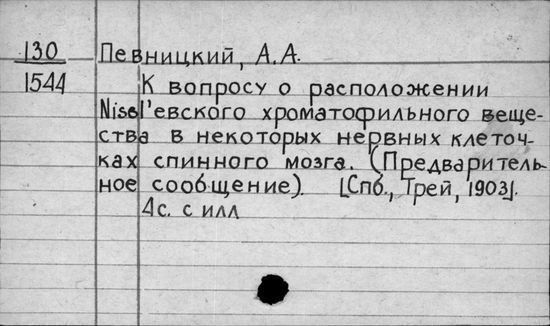 130 Певницкий, А.А.
1544 К вопросу о расположении
Nissl'евского хроматофильного веще-
ства в некоторых нервных клеточ-
ках спинного мозга. (Предваритель-
ное сообщение). [Спб., Трей, 1903].
4с. с илл